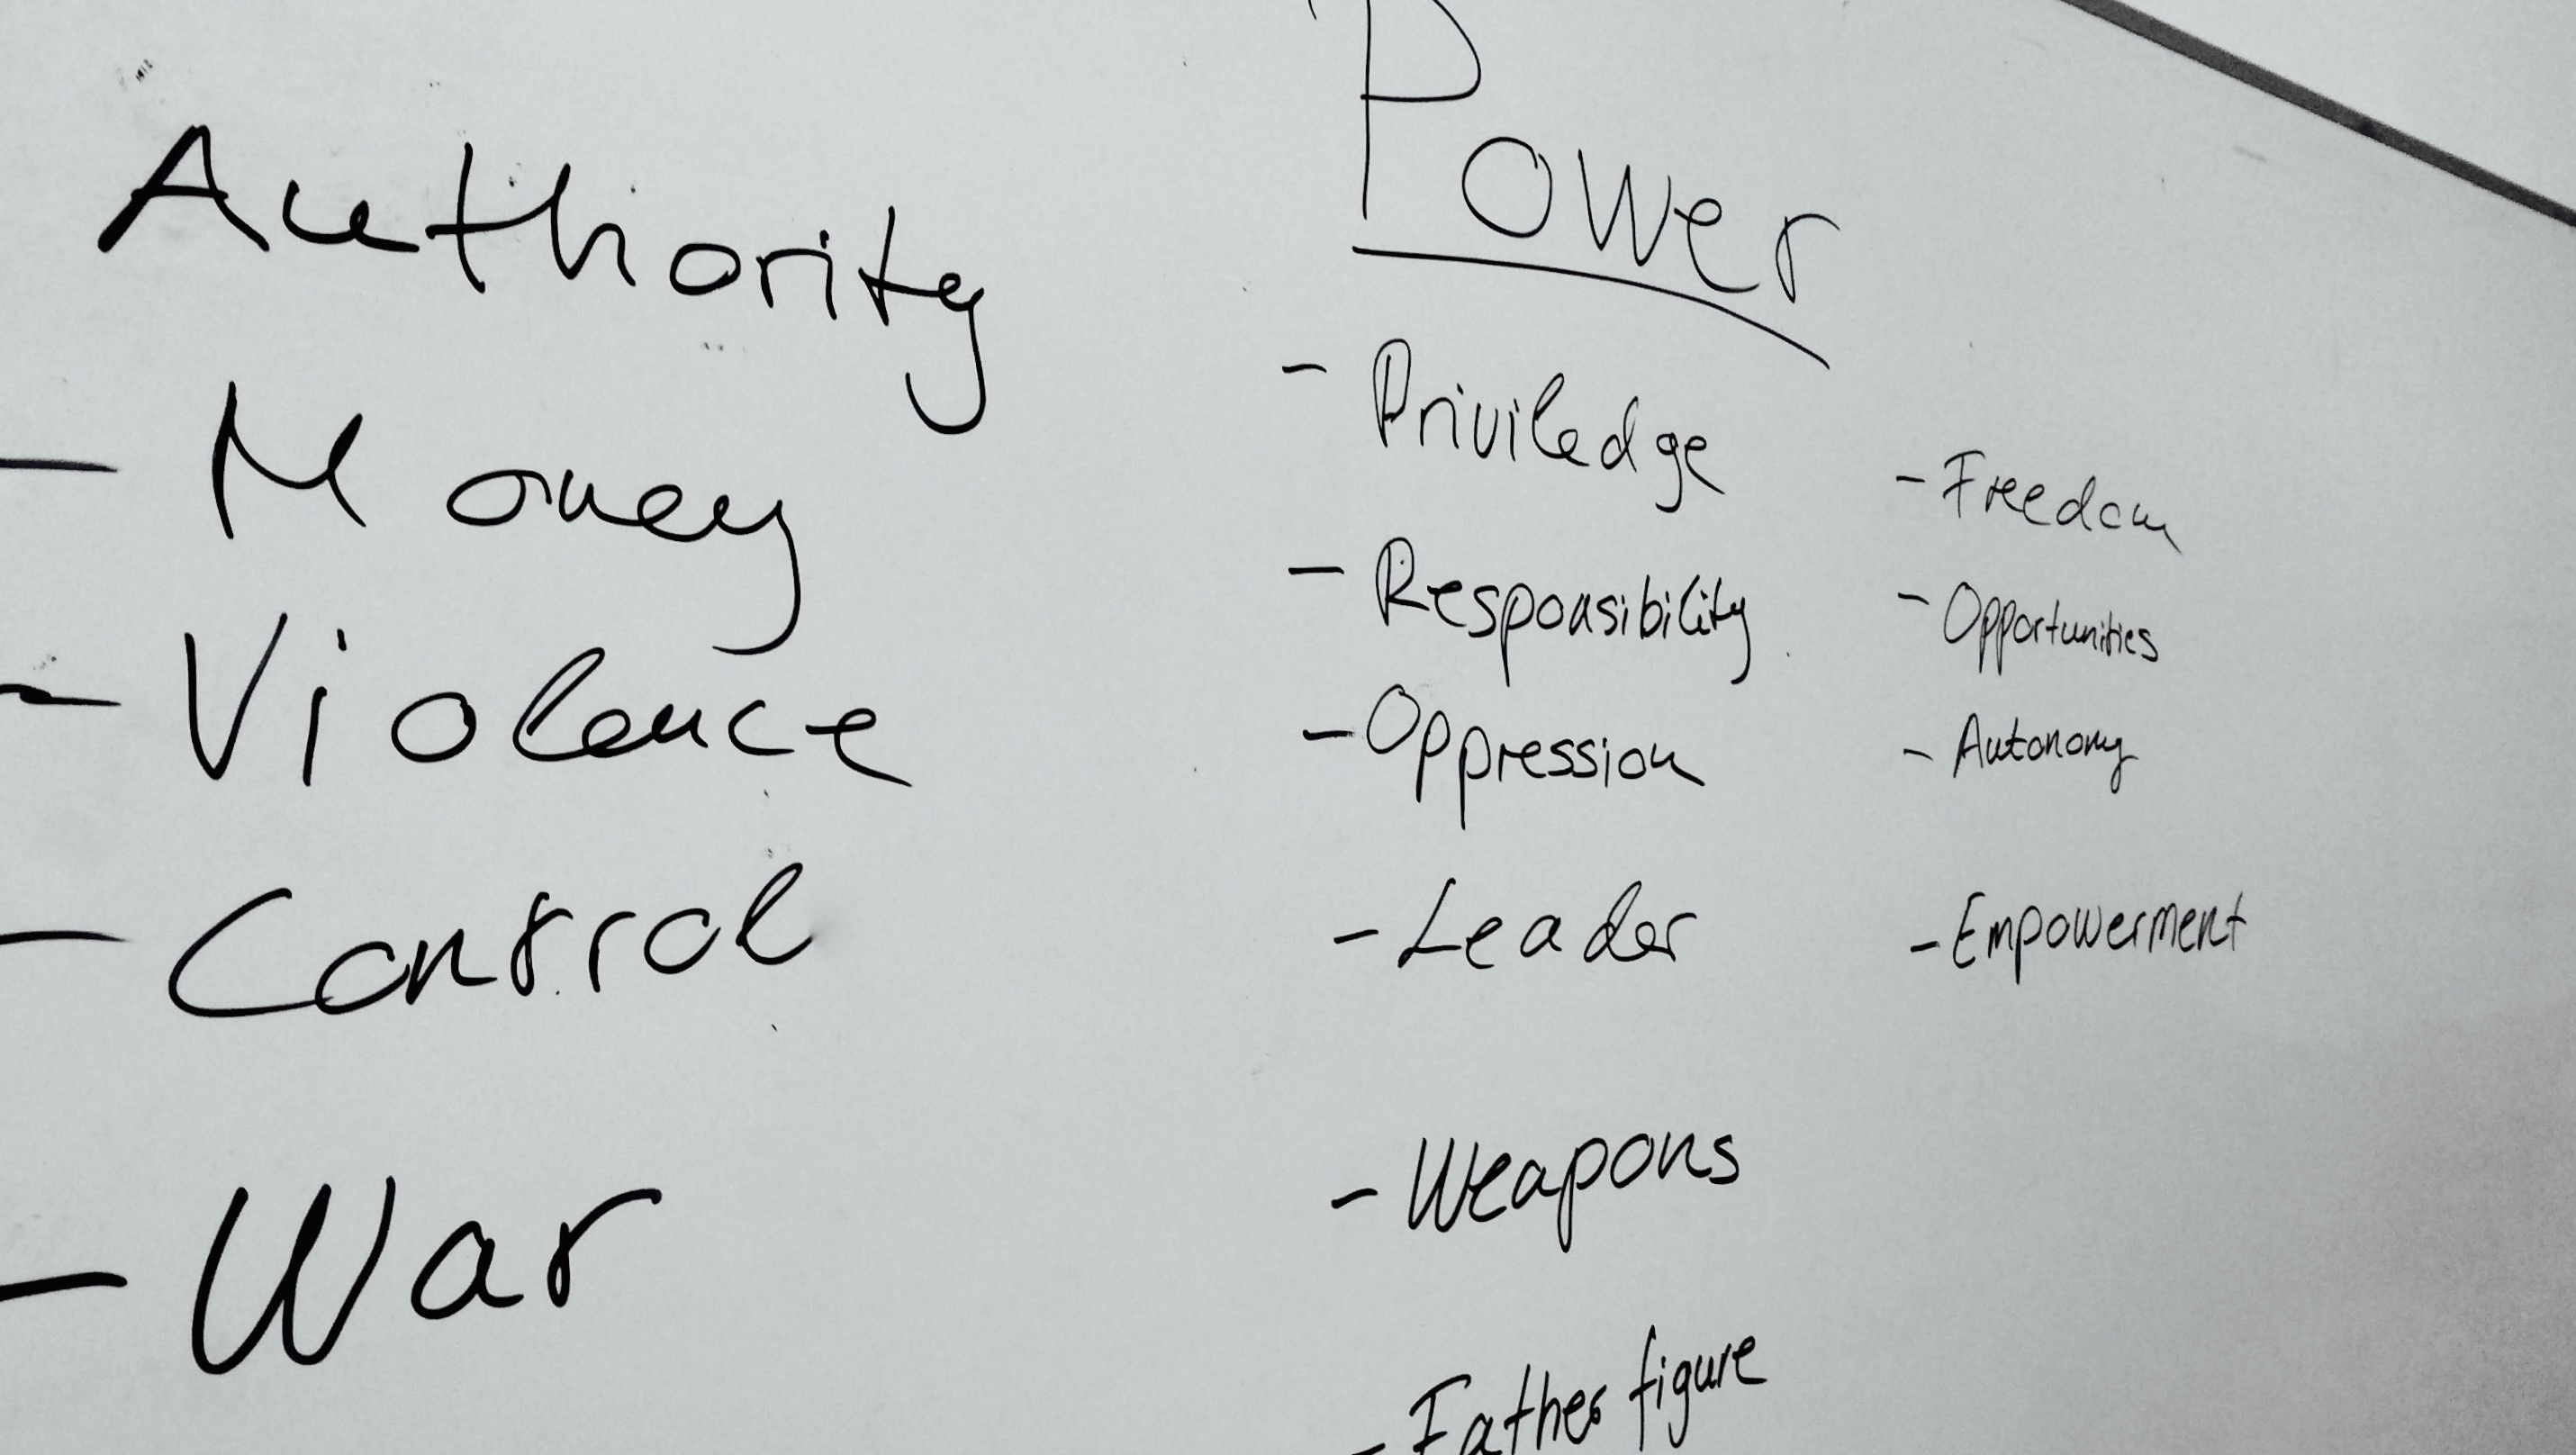 Power
Authority
- Money
- Violence
- Control
- War
- Priviledge
- Responsibility
- Oppression
- Leader
- Weapons
- Father figure
- Freedom
- Opportunities
- Autonomy
- Empowerment